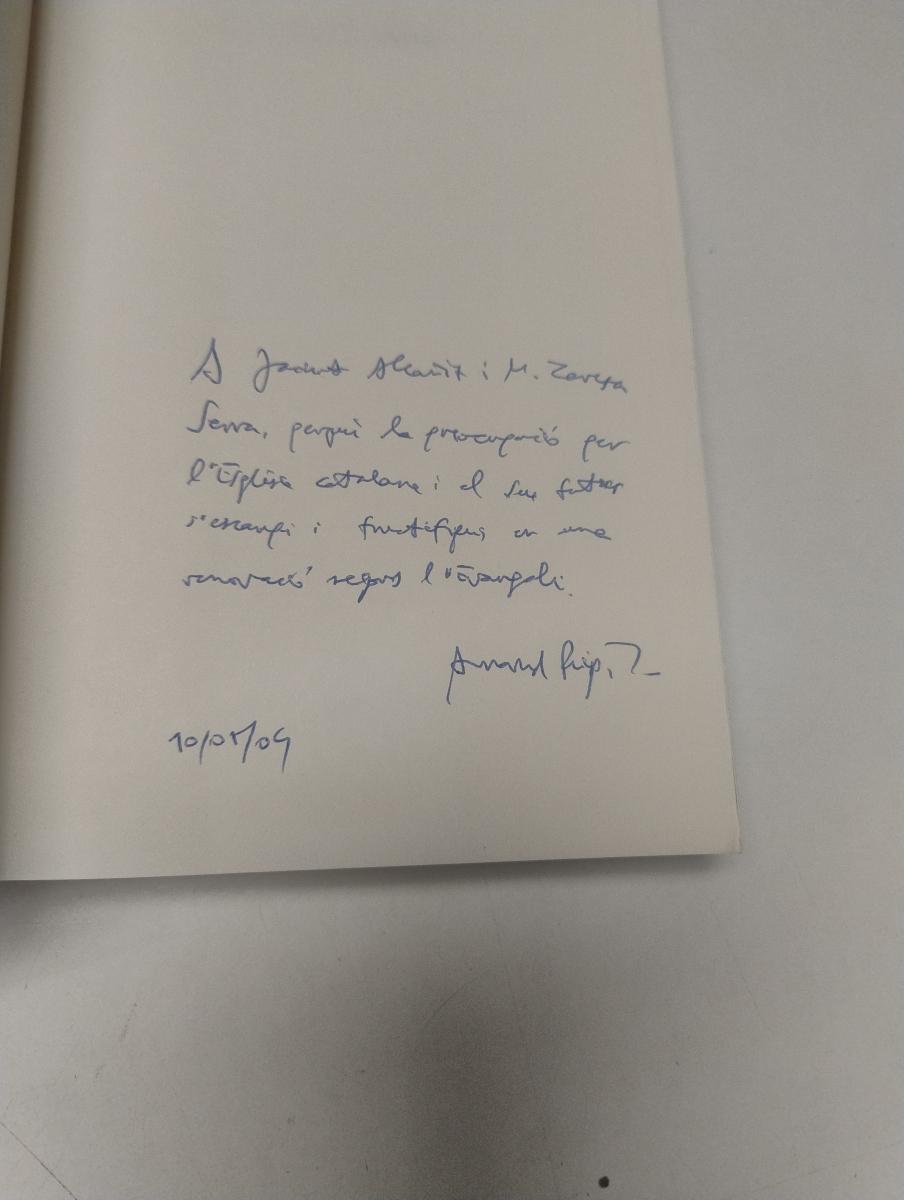 A Jacint Alcañiz i M. Teresa
Serra, perquè la preocupació per
l'Església catalana i el seu futur
s'escampi i fructifiqui en una
renovació segons l'Evangeli.
Armand Puig, T
10/05/09